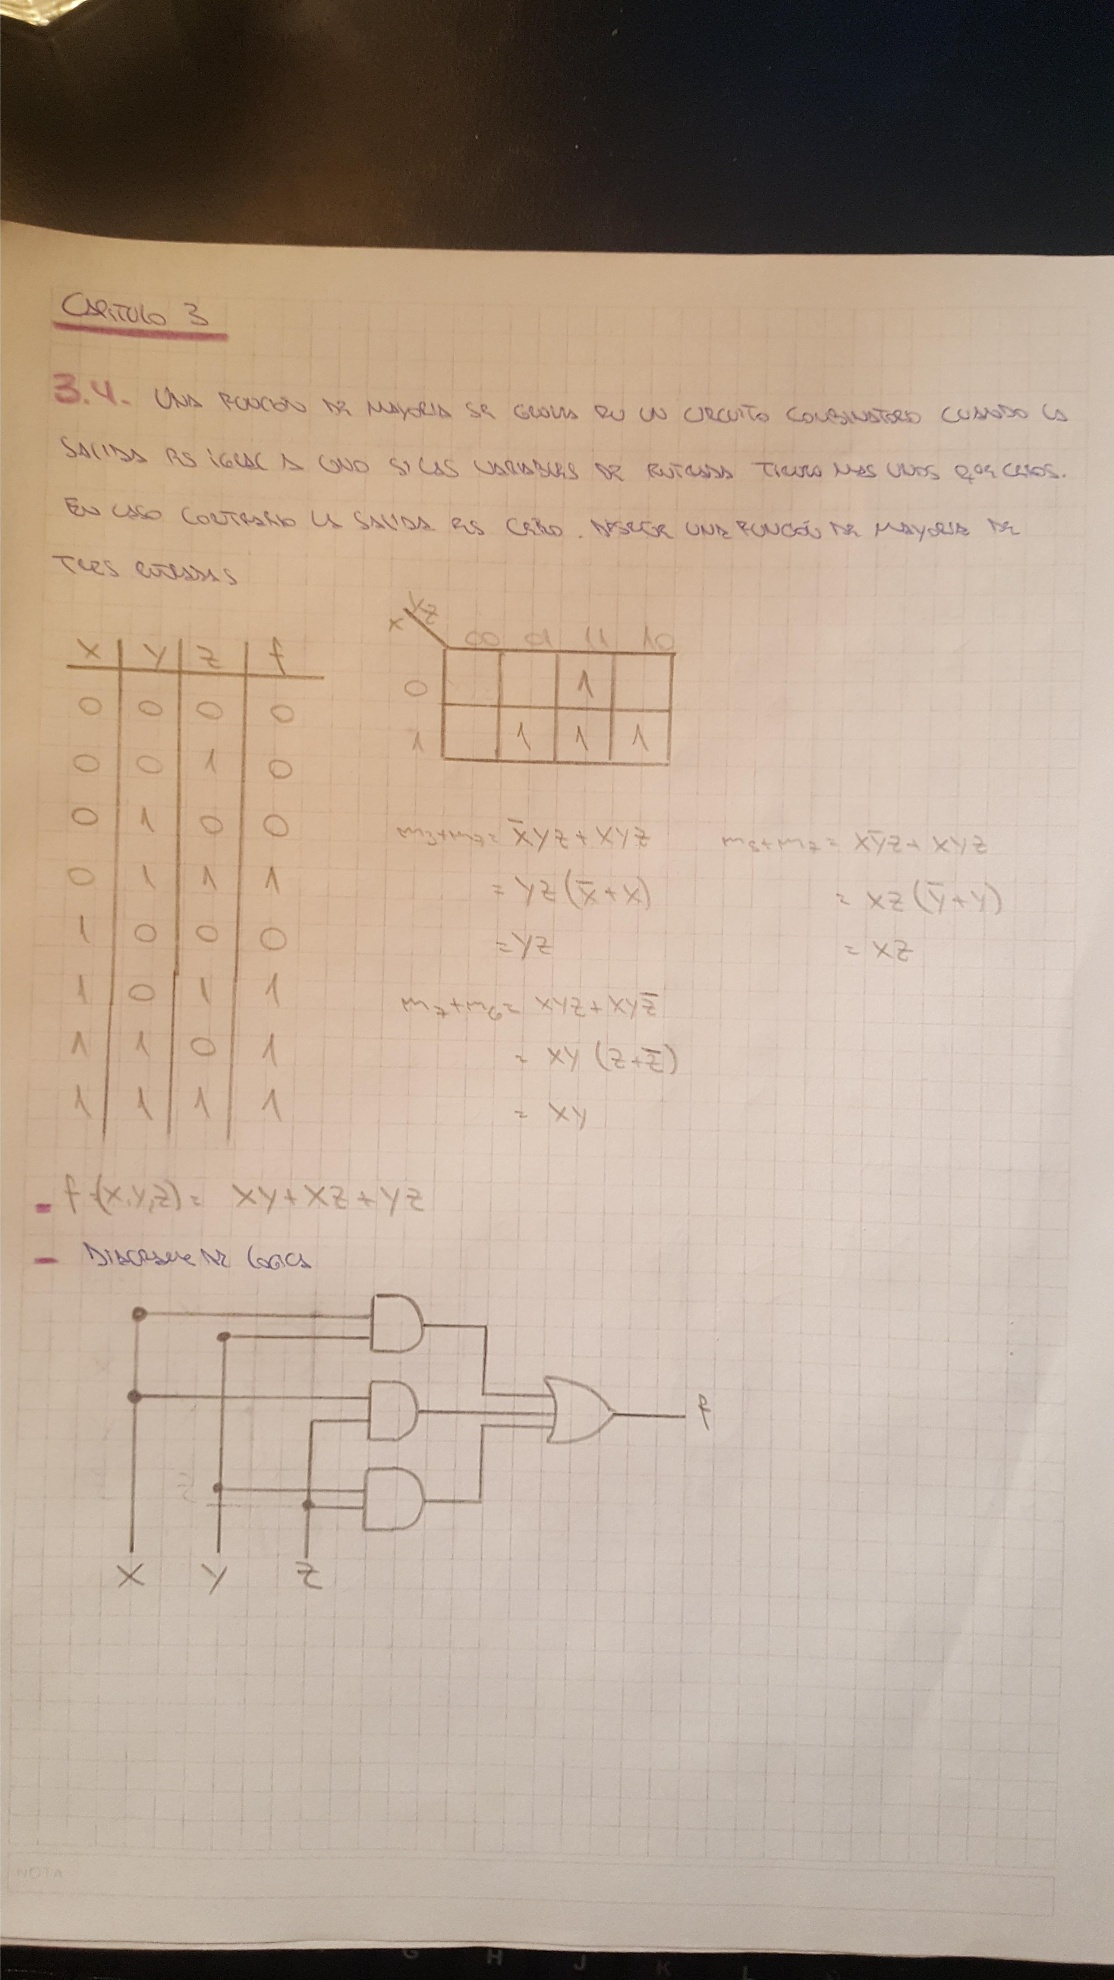 CAPITULO 3
3.4. UNA FUNCION DE MAYORIA SE GENERA EN UN CIRCUITO COMBINATORIO CUANDO LA
SALIDA ES IGUAL A UNO SI LAS VARIABLES DE ENTRADA TIENEN MAS UNOS QUE CEROS.
EN CASO CONTRARIO LA SALIDA ES CERO. DISEÑE UNA FUNCIÓN DE MAYORIA DE
TRES ENTRADAS
x yz
00 01 11 10
0 1
1 1 1 1
X Y Z f
0 0 0 0
0 0 1 0
0 1 0 0
0 1 1 1
1 0 0 0
1 0 1 1
1 1 0 1
1 1 1 1
m3+m7= x̄yz+xyz
= yz(x̄+x)
= yz
m5+m7= xȳz+xyz
= xz(ȳ+y)
= xz
m7+m6= xyz+xyz̄
= xy(z+z̄)
= xy
- f(x,y,z)= xy+xz+yz
- DIAGRAMA DE LOGICA
f
X Y Z
NOTA
G H J K L